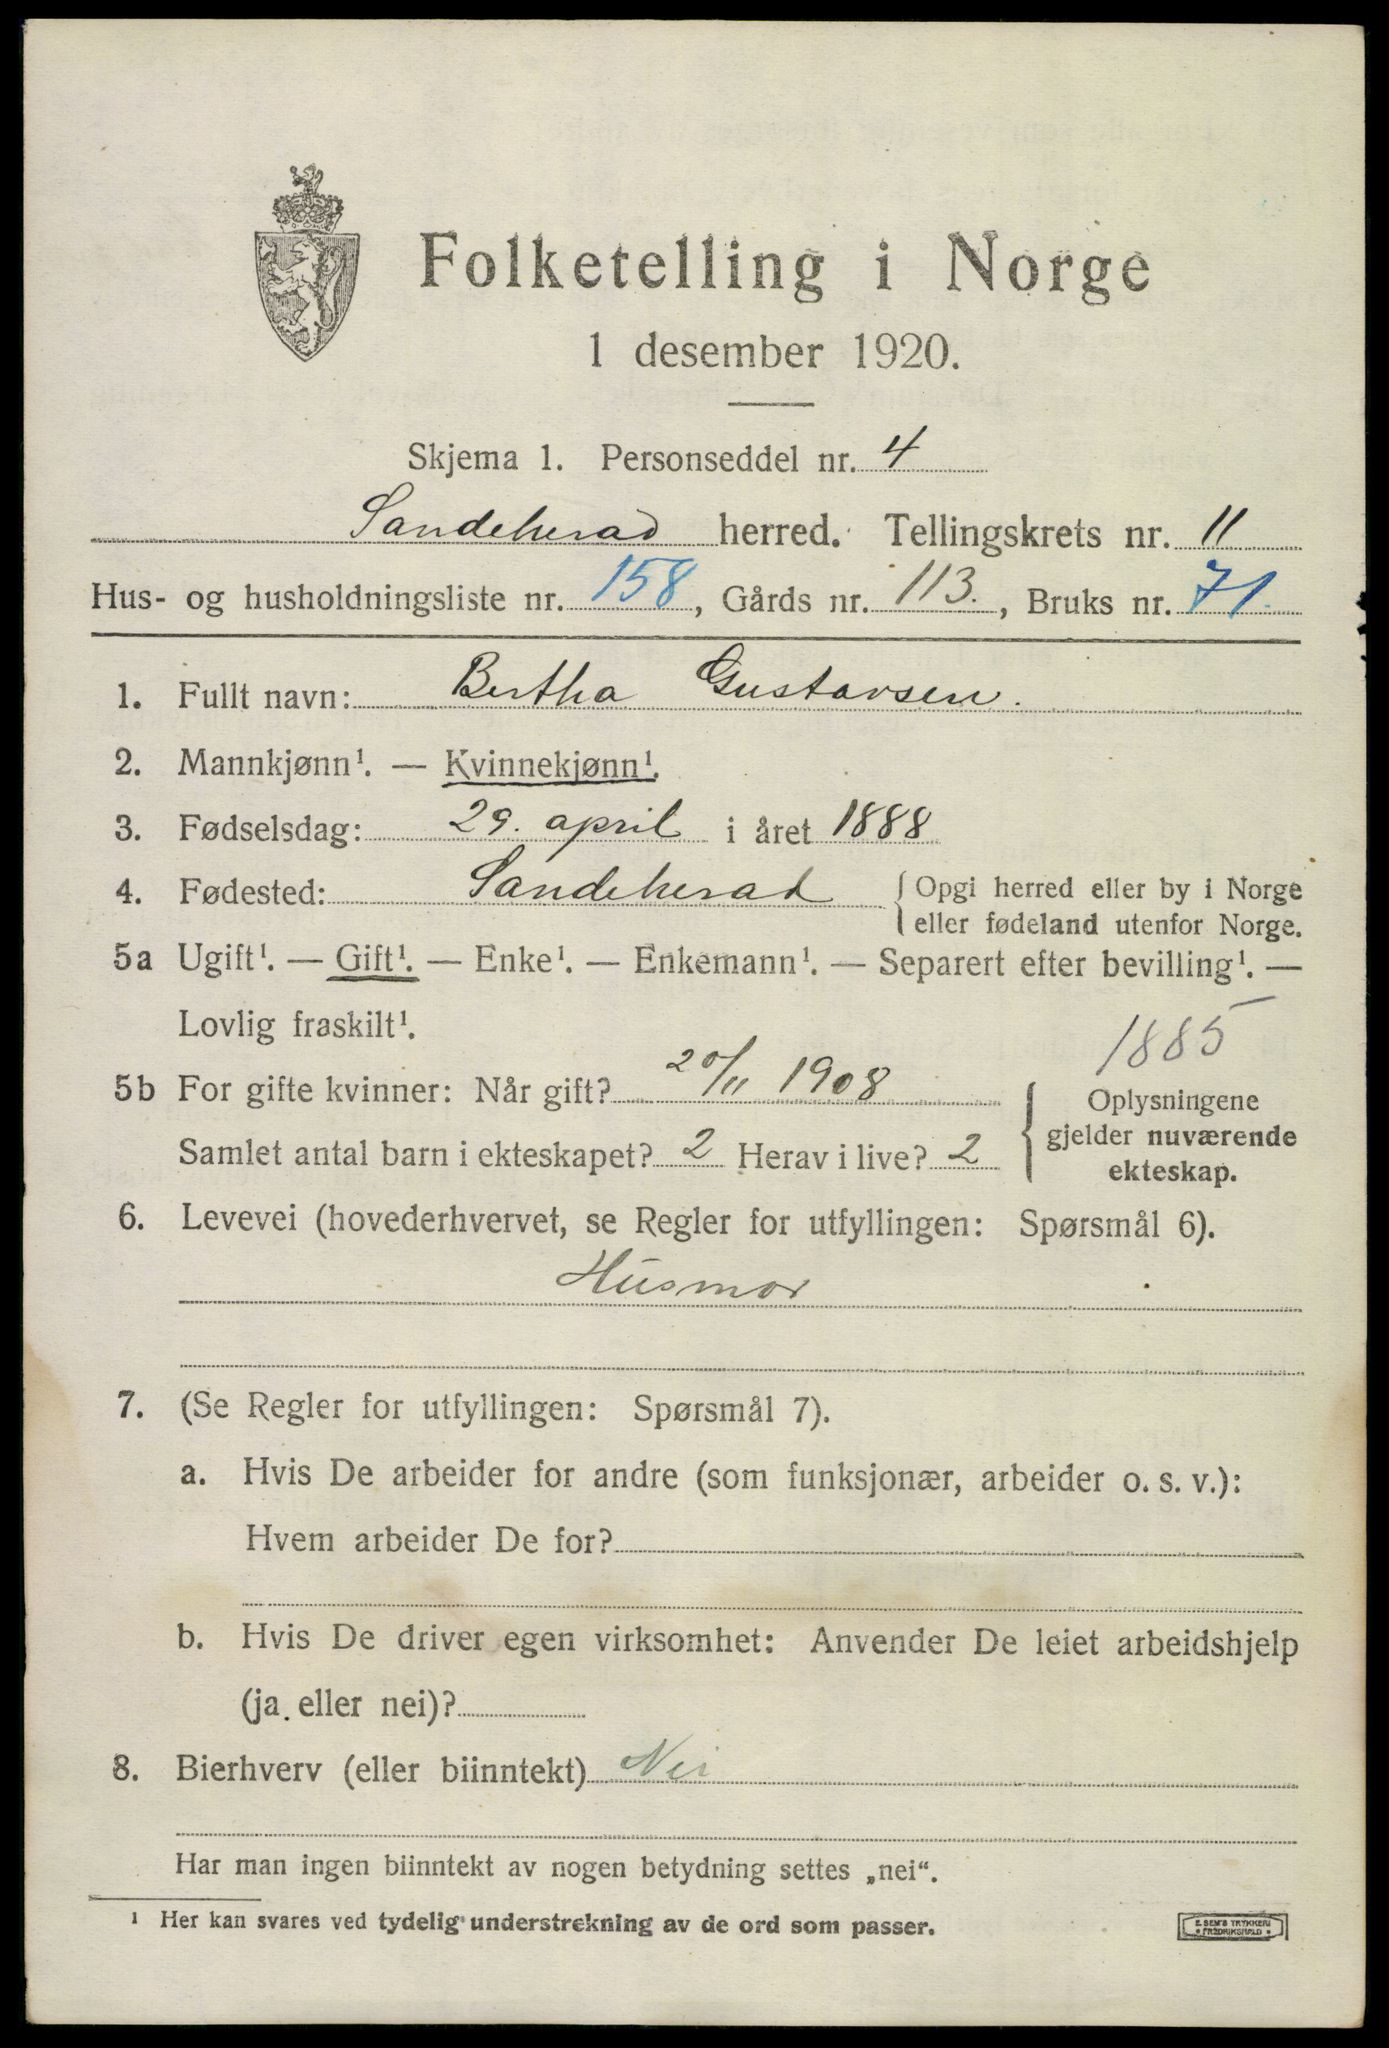 Folketelling i Norge
1 desember 1920.
Skjema 1. Personseddel nr. 4
Sandeherad herred. Tellingskrets nr. 11
Hus- og husholdningsliste nr. 158, Gårds nr. 113., Bruks nr. 71.
1. Fullt navn: Bertha Gustavsen.
2. Mannkjønn¹. — Kvinnekjønn¹.
3. Fødselsdag: 29. april i året 1888
4. Fødested: Sandeherad { Opgi herred eller by i Norge
eller fødeland utenfor Norge.
5a Ugift¹. — Gift¹. — Enke¹. — Enkemann¹. — Separert efter bevilling¹. —
Lovlig fraskilt¹.
1885
5b For gifte kvinner: Når gift? 20/11 1908
Samlet antal barn i ekteskapet? 2 Herav i live? 2
{ Oplysningene
gjelder nuværende
ekteskap.
6. Levevei (hovederhvervet, se Regler for utfyllingen: Spørsmål 6).
Husmor
7. (Se Regler for utfyllingen: Spørsmål 7).
a. Hvis De arbeider for andre (som funksjonær, arbeider o. s. v.):
Hvem arbeider De for?
b. Hvis De driver egen virksomhet: Anvender De leiet arbeidshjelp
(ja eller nei)?
8. Bierhverv (eller biinntekt) Nei
Har man ingen biinntekt av nogen betydning settes „nei“.
¹ Her kan svares ved tydelig understrekning av de ord som passer.
E. SEM'S TRYKKERI
• FREDRIKSHALD •